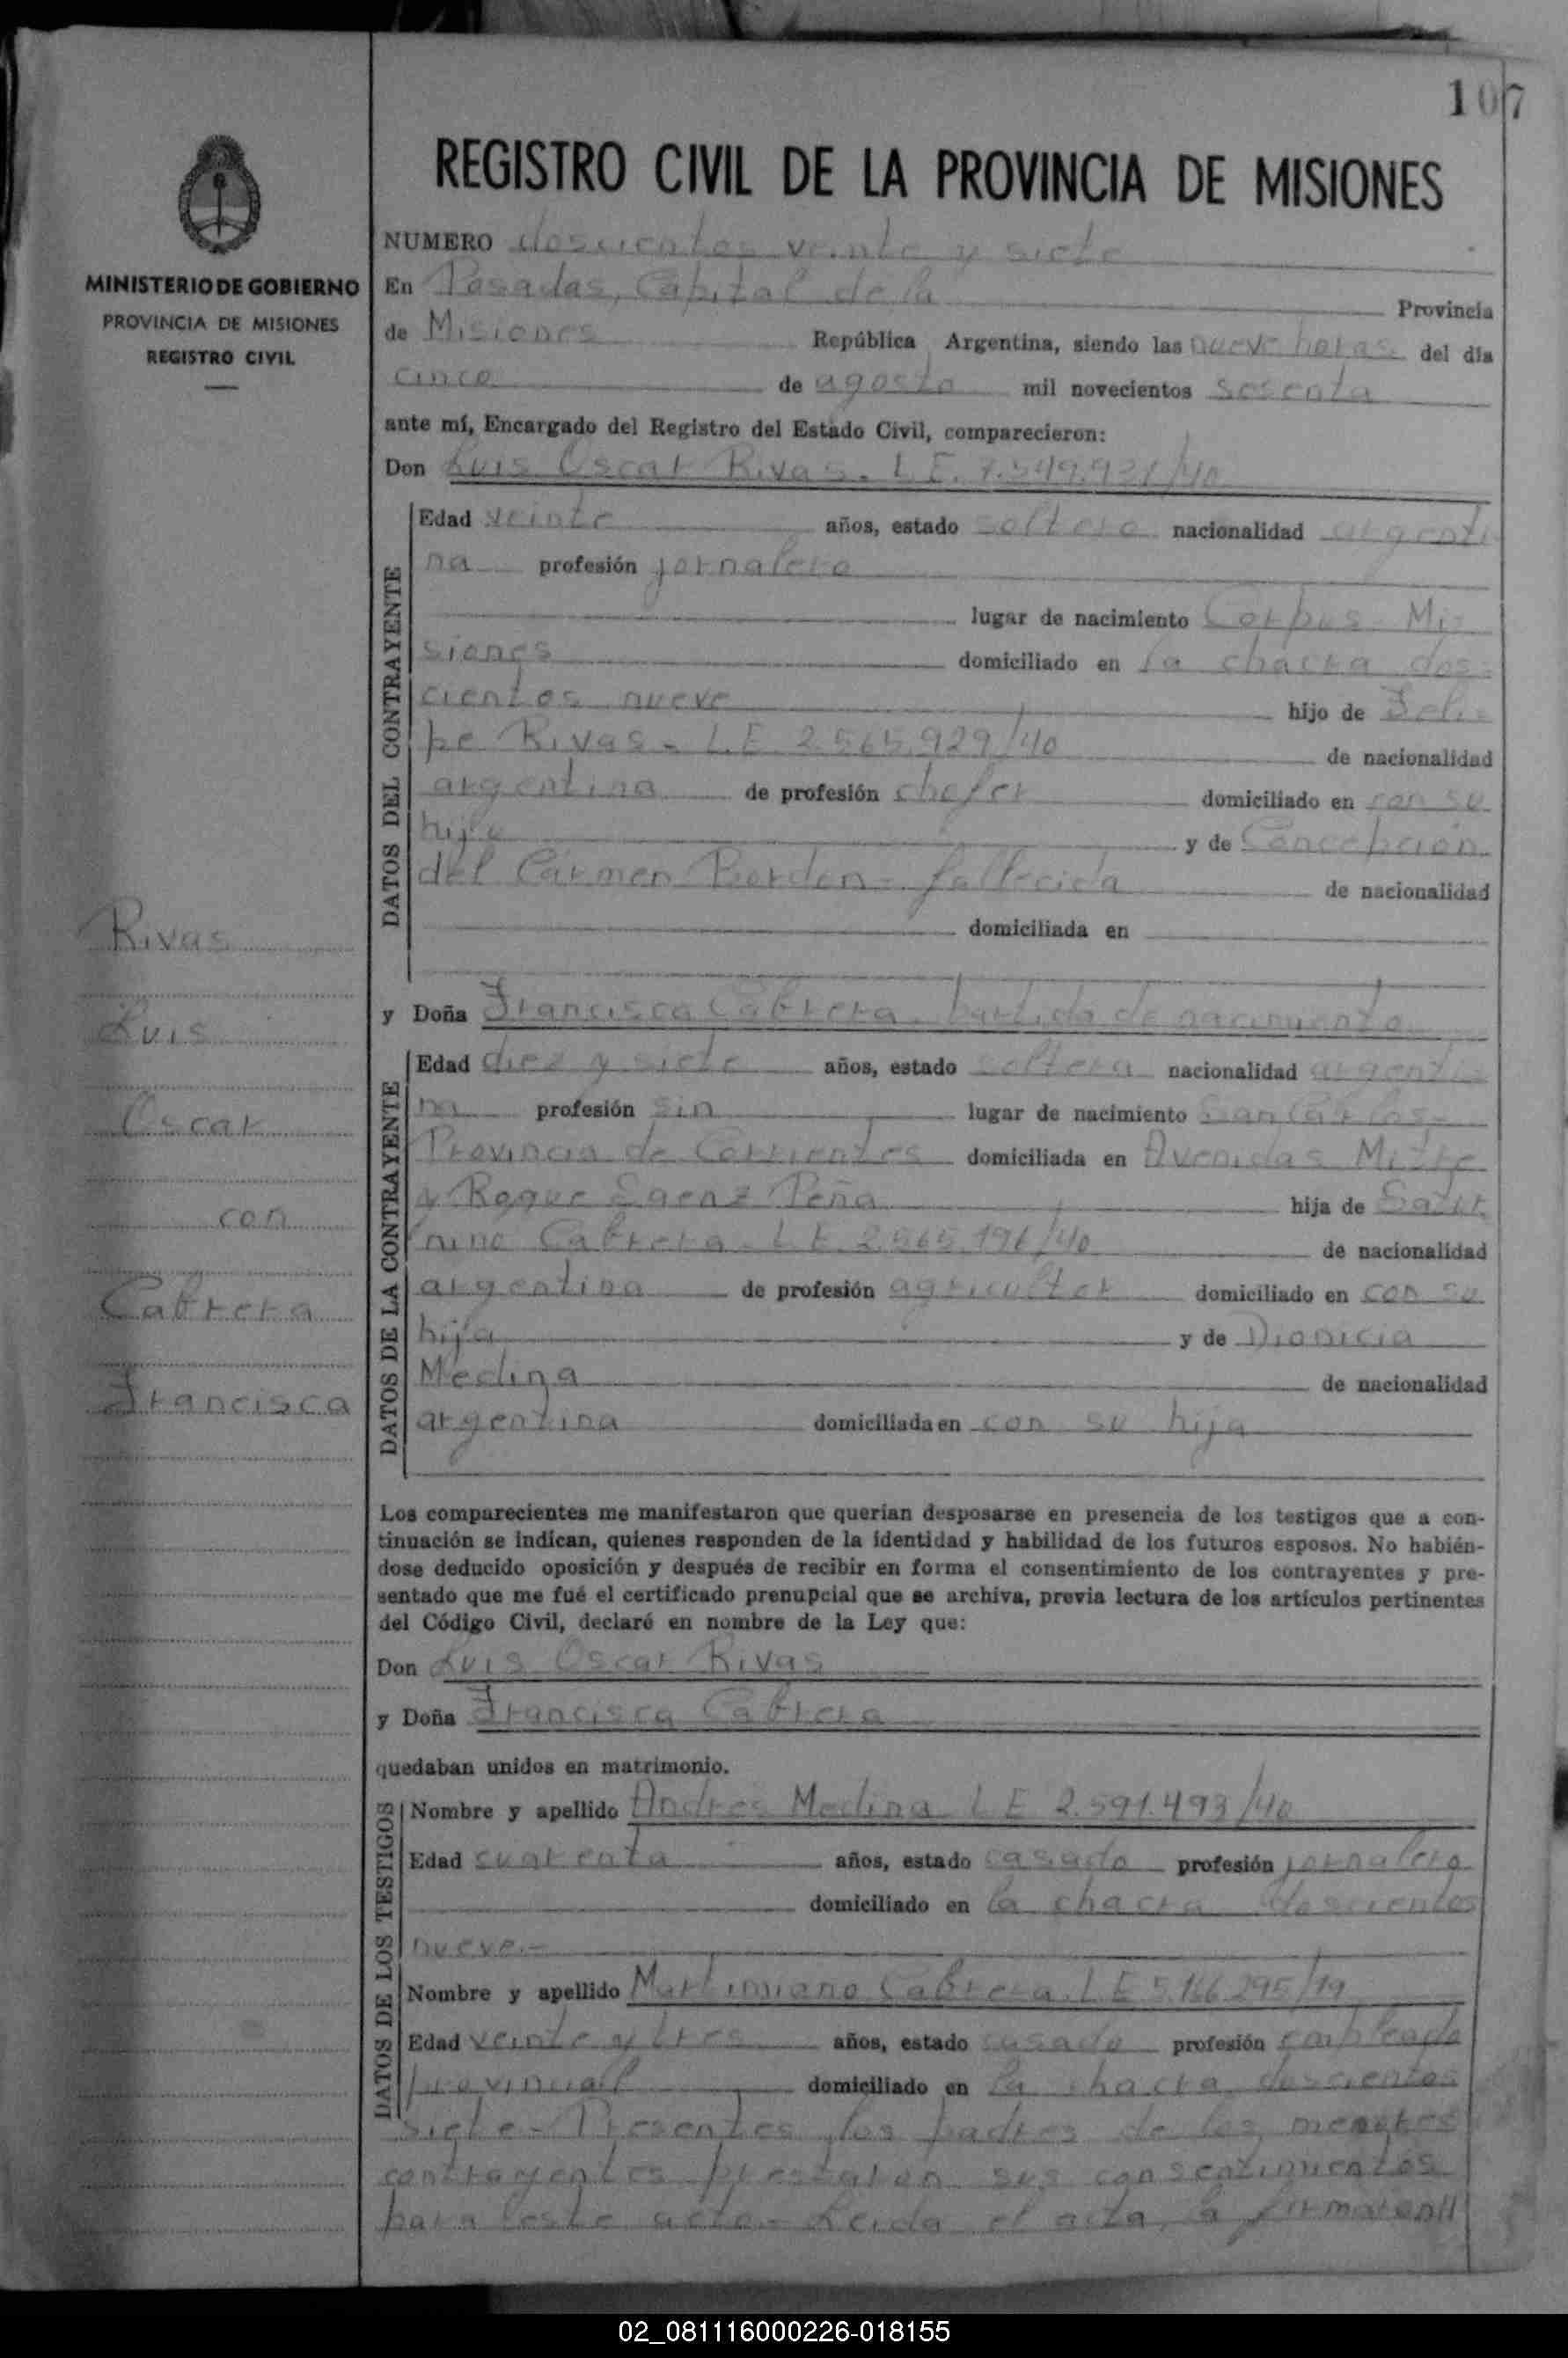 107
REGISTRO CIVIL DE LA PROVINCIA DE MISIONES
MINISTERIO DE GOBIERNO
PROVINCIA DE MISIONES
REGISTRO CIVIL
NUMERO doscientos veinte y siete
En Posadas, Capital de la Provincia
de Misiones República Argentina, siendo las nueve horas del día
cinco de agosto mil novecientos sesenta
ante mí, Encargado del Registro del Estado Civil, comparecieron:
Don Luis Oscar Rivas. L.E. 7.549.921/40
DATOS DEL CONTRAYENTE
Edad veinte años, estado soltero nacionalidad argenti
na profesión jornalero
lugar de nacimiento Corpus - Mi-
siones domiciliado en la chacra dos-
cientos nueve hijo de Feli-
pe Rivas - L.E. 2.565.929/40 de nacionalidad
argentina de profesión chofer domiciliado en con su
hijo y de Concepción
del Carmen Bordon - fallecida de nacionalidad
domiciliada en
Rivas
Luis
Oscar
con
Cabrera
Francisca
y Doña Francisca Cabrera - partida de nacimiento
DATOS DE LA CONTRAYENTE
Edad diez y siete años, estado soltera nacionalidad argenti
na profesión sin lugar de nacimiento San Carlos -
Provincia de Corrientes domiciliada en Avenidas Mitre
y Roque Saenz Peña hija de Satur
nino Cabrera - L.E. 2.565.196/40 de nacionalidad
argentina de profesión agricultor domiciliado en con su
hija y de Dionicia
Medina de nacionalidad
argentina domiciliada en con su hija
Los comparecientes me manifestaron que querían desposarse en presencia de los testigos que a con-
tinuación se indican, quienes responden de la identidad y habilidad de los futuros esposos. No habién-
dose deducido oposición y después de recibir en forma el consentimiento de los contrayentes y pre-
sentado que me fué el certificado prenupcial que se archiva, previa lectura de los artículos pertinentes
del Código Civil, declaré en nombre de la Ley que:
Don Luis Oscar Rivas
y Doña Francisca Cabrera
quedaban unidos en matrimonio.
DATOS DE LOS TESTIGOS
Nombre y apellido Andres Medina L E 2.591.493/40
Edad cuarenta años, estado casado profesión jornalero
domiciliado en la chacra doscientos
nueve.-
Nombre y apellido Martimiano Cabrera. L E 5.166.295/19
Edad veinte y tres años, estado casado profesión empleado
provincial domiciliado en la chacra doscientos
siete - Presentes los padres de los menores
contrayentes prestaron sus consentimientos
para este acto - Leida el acta, la firmaron//
02_081116000226-018155